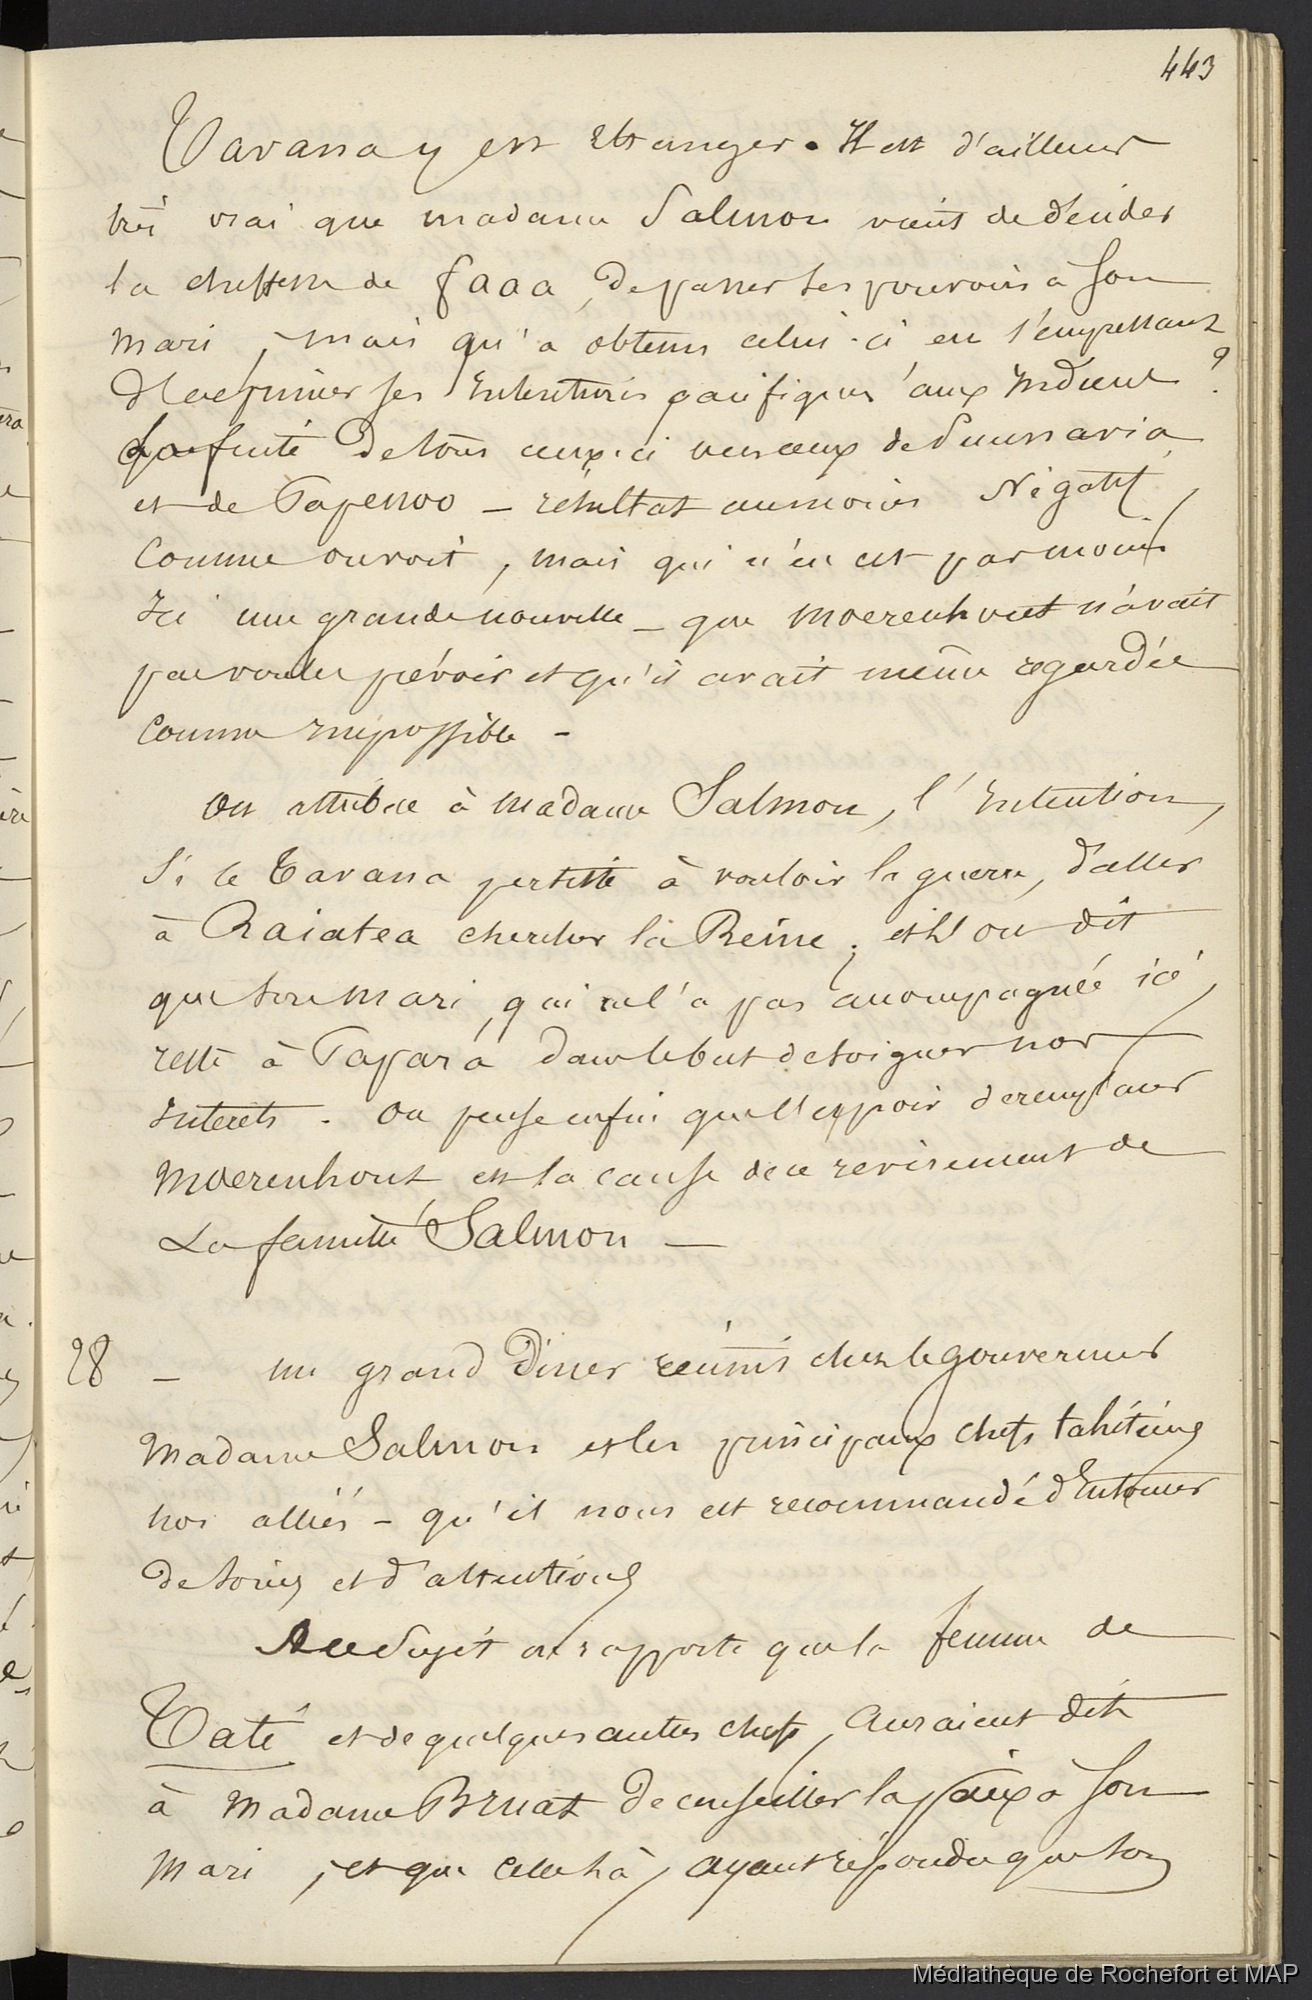 443
Tavana y est Etranger. Il est d'ailleurs
très vrai que madame Salmon vient de décider
la cheffesse de faaa, de passer ses pouvoirs à son
mari, mais qu'a obtenu celui-ci en s'empressant
d'exprimer ses Intentions pacifiques aux Indiens ?
La fuite de tous ceux-ci vers ceux de Punaavia
et de Papenoo – résultat au moins Négatif,
Comme on voit, mais qui n'en est pas moins
Ici une grande nouvelle – que Moerenhout n'avait
pas voulu prévoir et qu'il avait même regardée
Comme impossible –
On attribue à Madame Salmon, l'Intention,
Si le Tavana persiste à vouloir la guerre, d'aller
à Raiatea chercher la Reine; et l'on dit
que son mari, qui ne l'a pas accompagnée ici,
reste à Papara dans le but de soigner nos
Interets. On pense enfin que l'espoir de remplacer
Moerenhout est la cause de ce revirement de
La famille Salmon —
28 – un grand Diner réunis chez le gouverneur
Madame Salmon et les principaux chefs tahitiens
nos alliés – qu'il nous est recommandé d'Entourer
de soins et d'attentions
Au Sujet on rapporte que la femme de
Taté et de quelques autres chefs, auraient dit
à Madame Bruat de conseiller la paix à son
Mari, et que celle-là, ayant répondu que son
Médiathèque de Rochefort et MAP